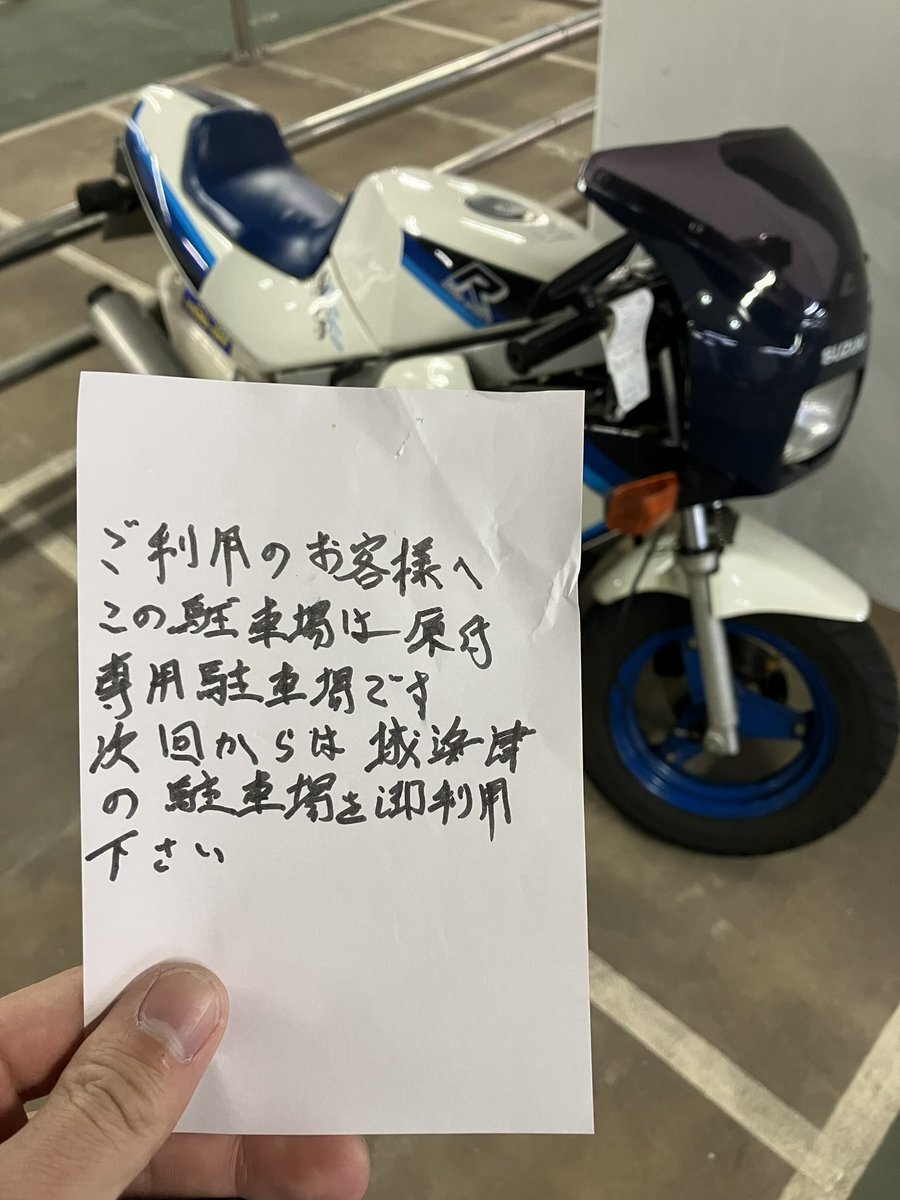 ご利用のお客様へ
この駐車場は原付
専用駐車場です
次回からは城浜津
の駐車場を御利用
下さい
R
SUZUKI